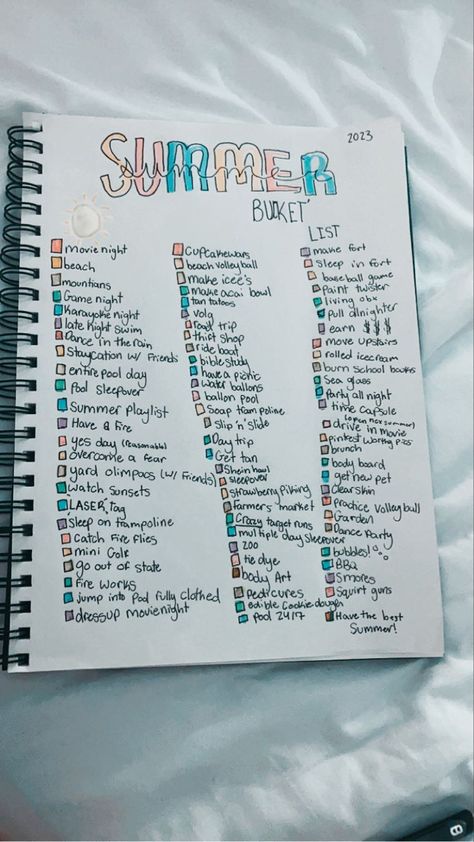 2023
SUMMER
BUCKET
LIST
movie night
beach
mountians
Game night
Karayoke night
late night swim
Dance in the rain
Staycation w/ Friends
entire pool day
Pool sleepover
Summer Playlist
Have a Fire
yes day (reasonable)
overcome a fear
yard olimpacs (w/ Friends)
watch sunsets
LASER tag
Sleep on trampoline
Catch Fire Flies
mini Golf
go out of state
Fire works
Jump into Pool fully clothed
dressup movie night
Cupcake wars
beach volley ball
make icee's
make acai bowl
tan tatoos
volg
road trip
thift shop
ride boat
bible study
have a picnic
water ballons
ballon pool
Soap trampoline
Slip 'n' slide
Day trip
Get tan
Shein haul
sleepover
strawberry piking
farmers market
Crazy target runs
multiple day sleepover
zoo
tie dye
body Art
Pedicures
edible cookie dough
pool 24/7
make fort
sleep in fort
baseball game
Paint twister
living obx
Pull allnighter
earn $ $ $
move upstairs
rolled icecream
burn school books
Sea glass
Party all night
time capsule
(open nxt summer)
drive in movie
pintrest worthy pics
brunch
body board
get new pet
Clear skin
practice volleyball
Garden
Dance Party
bubbles!
BBQ
Smores
Squirt guns
Have the best
Summer!